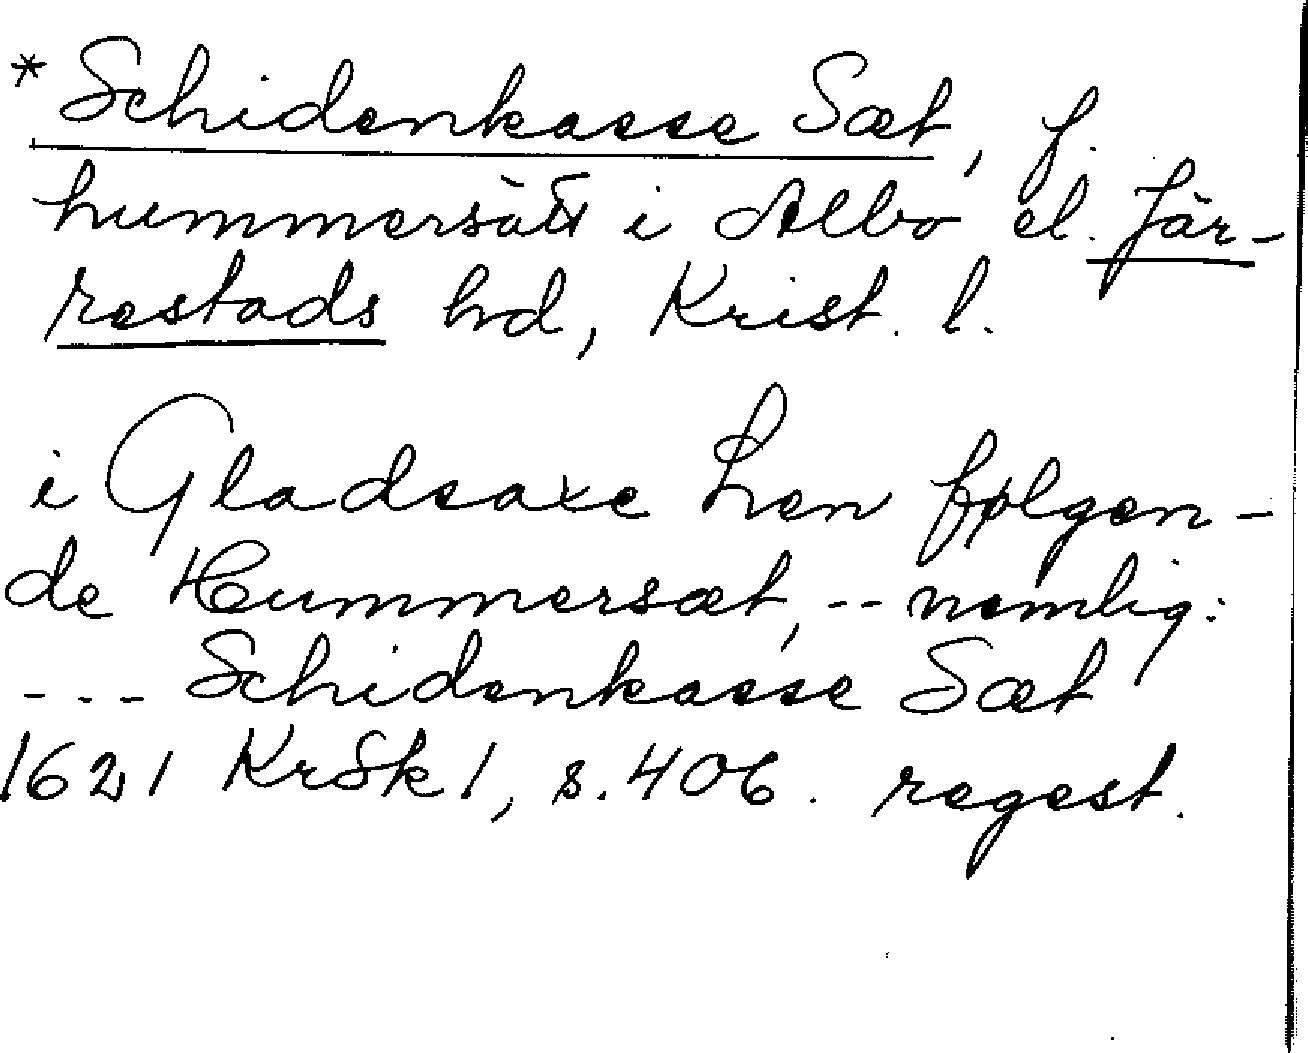 * Schidenkasse Sæt, f.
hummersätt i Albo el. Jär-
restads hd, Krist. l.
i Gladsaxe Len følgen-
de Hummersæt, -- nemlig:
--- Schidenkasse Sæt
1621 KrSk 1, s. 406. regest.